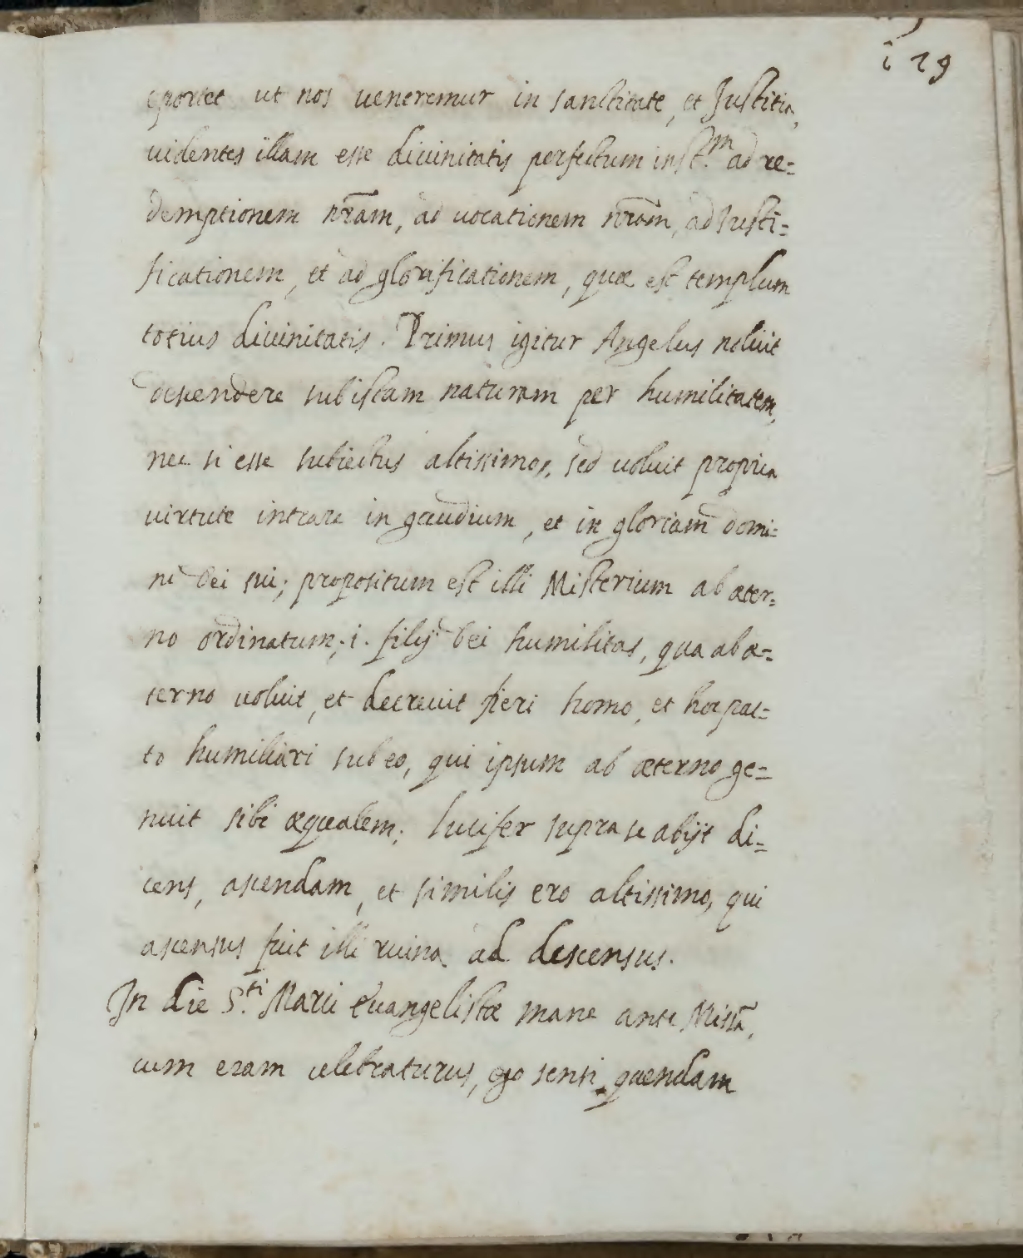 129
oportet ut nos ueneremur in sanctitate, et Justitia,
uidentes illam esse diuinitatis perfectum inst.m ad re=
demptionem nr̃am, ad uocationem nr̃am, ad Justi=
ficationem, et ad glorificationem, quæ est templum
totius diuinitatis. Primus igitur Angelus noluit
descendere sub istam naturam per humilitatem,
nec si esse subiectus altissimo, sed uoluit propria
uirtute intrare in gaudium, et in gloriam domi=
ni dei sui; propositum est illi Misterium ab æter=
no ordinatum, .i. filij dei humilitas, qua ab æ=
terno uoluit, et decreuit fieri homo, et hoc pac=
to humiliari sub eo, qui ipsum ab æterno ge=
nuit sibi æqualem. Lucifer supra se abijt di=
cens, ascendam, et similis ero altissimo, qui
ascensus fuit illi ruina ad descensus.
In die S.ti Marci Euangelistæ mane ante Missã,
cum eram celebraturus, ego sensi quendam